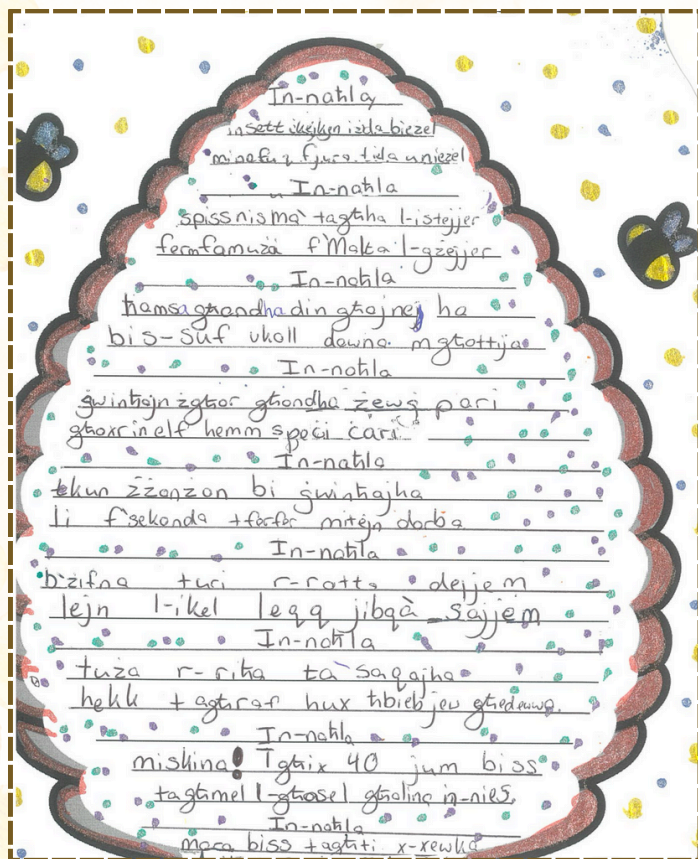 In-naħla
insett ċkejken iżda bieżel
minn fuq fjura tida u niezel
In-naħla
spiss nisma' tagħha l-istejjer
ferm famuża f'Malta l-gżejjer
In-naħla
ħamsa għandha din għajnejha
bis-suf ukoll dawna mgħottija
In-naħla
ġwinħajn żgħar għondha żewġ pari
għoxrin elf hemm speċi ċari
In-naħla
tkun żżonżon bi ġwinħajha
li f'sekonda tferfer mitejn darba
In-naħla
b'żifna turi r-rotta dejjem
lejn l-ikel leqq jibqà sajjem
In-naħla
tuża r-riħa ta' saqajha
hekk tagħraf hux ħbieb jew għedewwa.
In-naħla
miskina! Tgħix 40 jum biss
tagħmel l-għasel għalina n-nies.
In-naħla
mara biss tagħti x-xewka